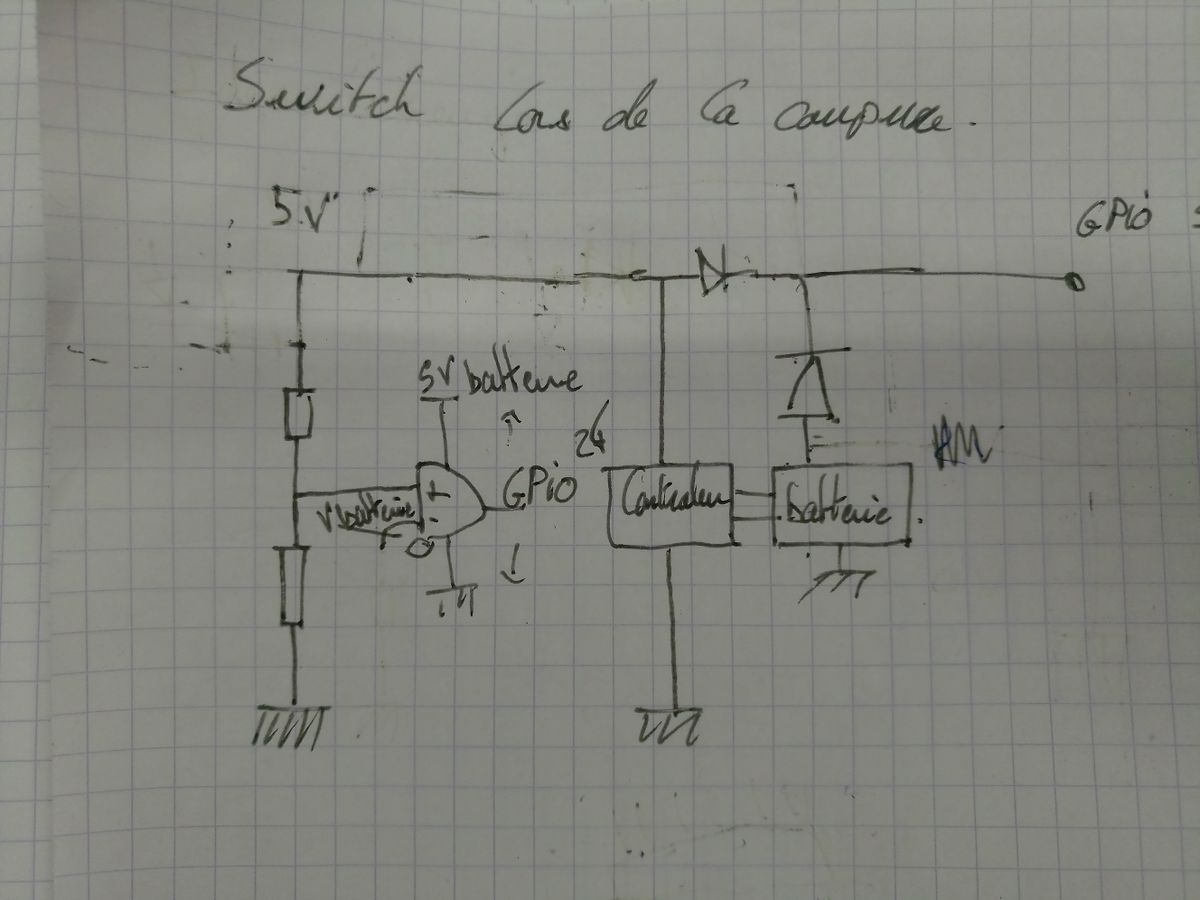 Switch lors de la coupure.
5V
GPiO
5V batterie
24
+
Vbatterie
GPiO
Controleur
batterie
-